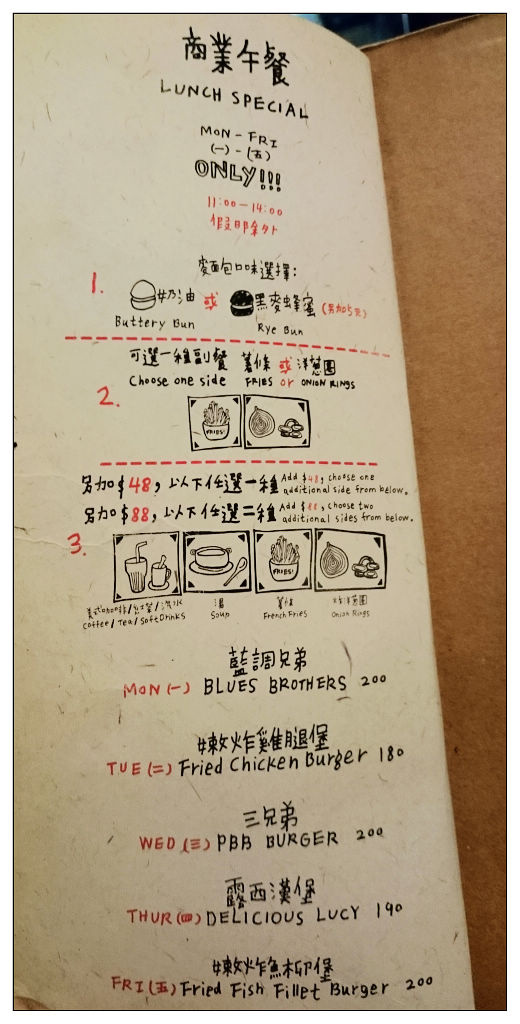 商業午餐
LUNCH SPECIAL
MON-FRI
(一)-(五)
ONLY!!!
11:00-14:00
假日除外
1.
麵包口味選擇:
奶油 或 黑麥蜂蜜 (另加5元)
Buttery Bun Rye Bun
可選一種副餐 薯條 或 洋蔥圈
Choose one side FRIES or ONION RINGS
2.
FRIES!
另加$48, 以下任選一種 Add $48, choose one additional side from below.
另加$88, 以下任選二種 Add $88, choose two additional sides from below.
3.
FRIES!
美式coffee/紅茶/汽水 湯 薯條 炸洋蔥圈
Coffee/Tea/Soft Drinks Soup French Fries Onion Rings
藍調兄弟
MON(一) BLUES BROTHERS 200
酥炸雞腿堡
TUE(二) Fried Chicken Burger 180
三兄弟
WED(三) PBB BURGER 200
露西漢堡
THUR(四) DELICIOUS LUCY 190
酥炸魚柳堡
FRI(五) Fried Fish Fillet Burger 200